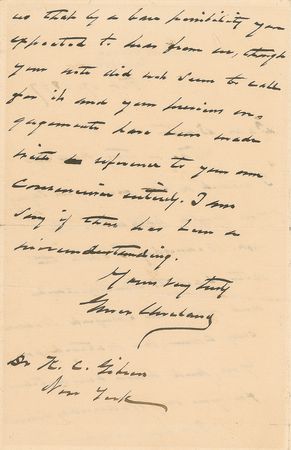 us that by a bare possibility you
expected to hear from me, though
your note did not seem to call
for it and your previous en-
gagements have been made
with reference to your own
convenience entirely. I am
sorry if there has been a
misunderstanding.
Yours very truly
Grover Cleveland
Dr K. C. Gibson
New York